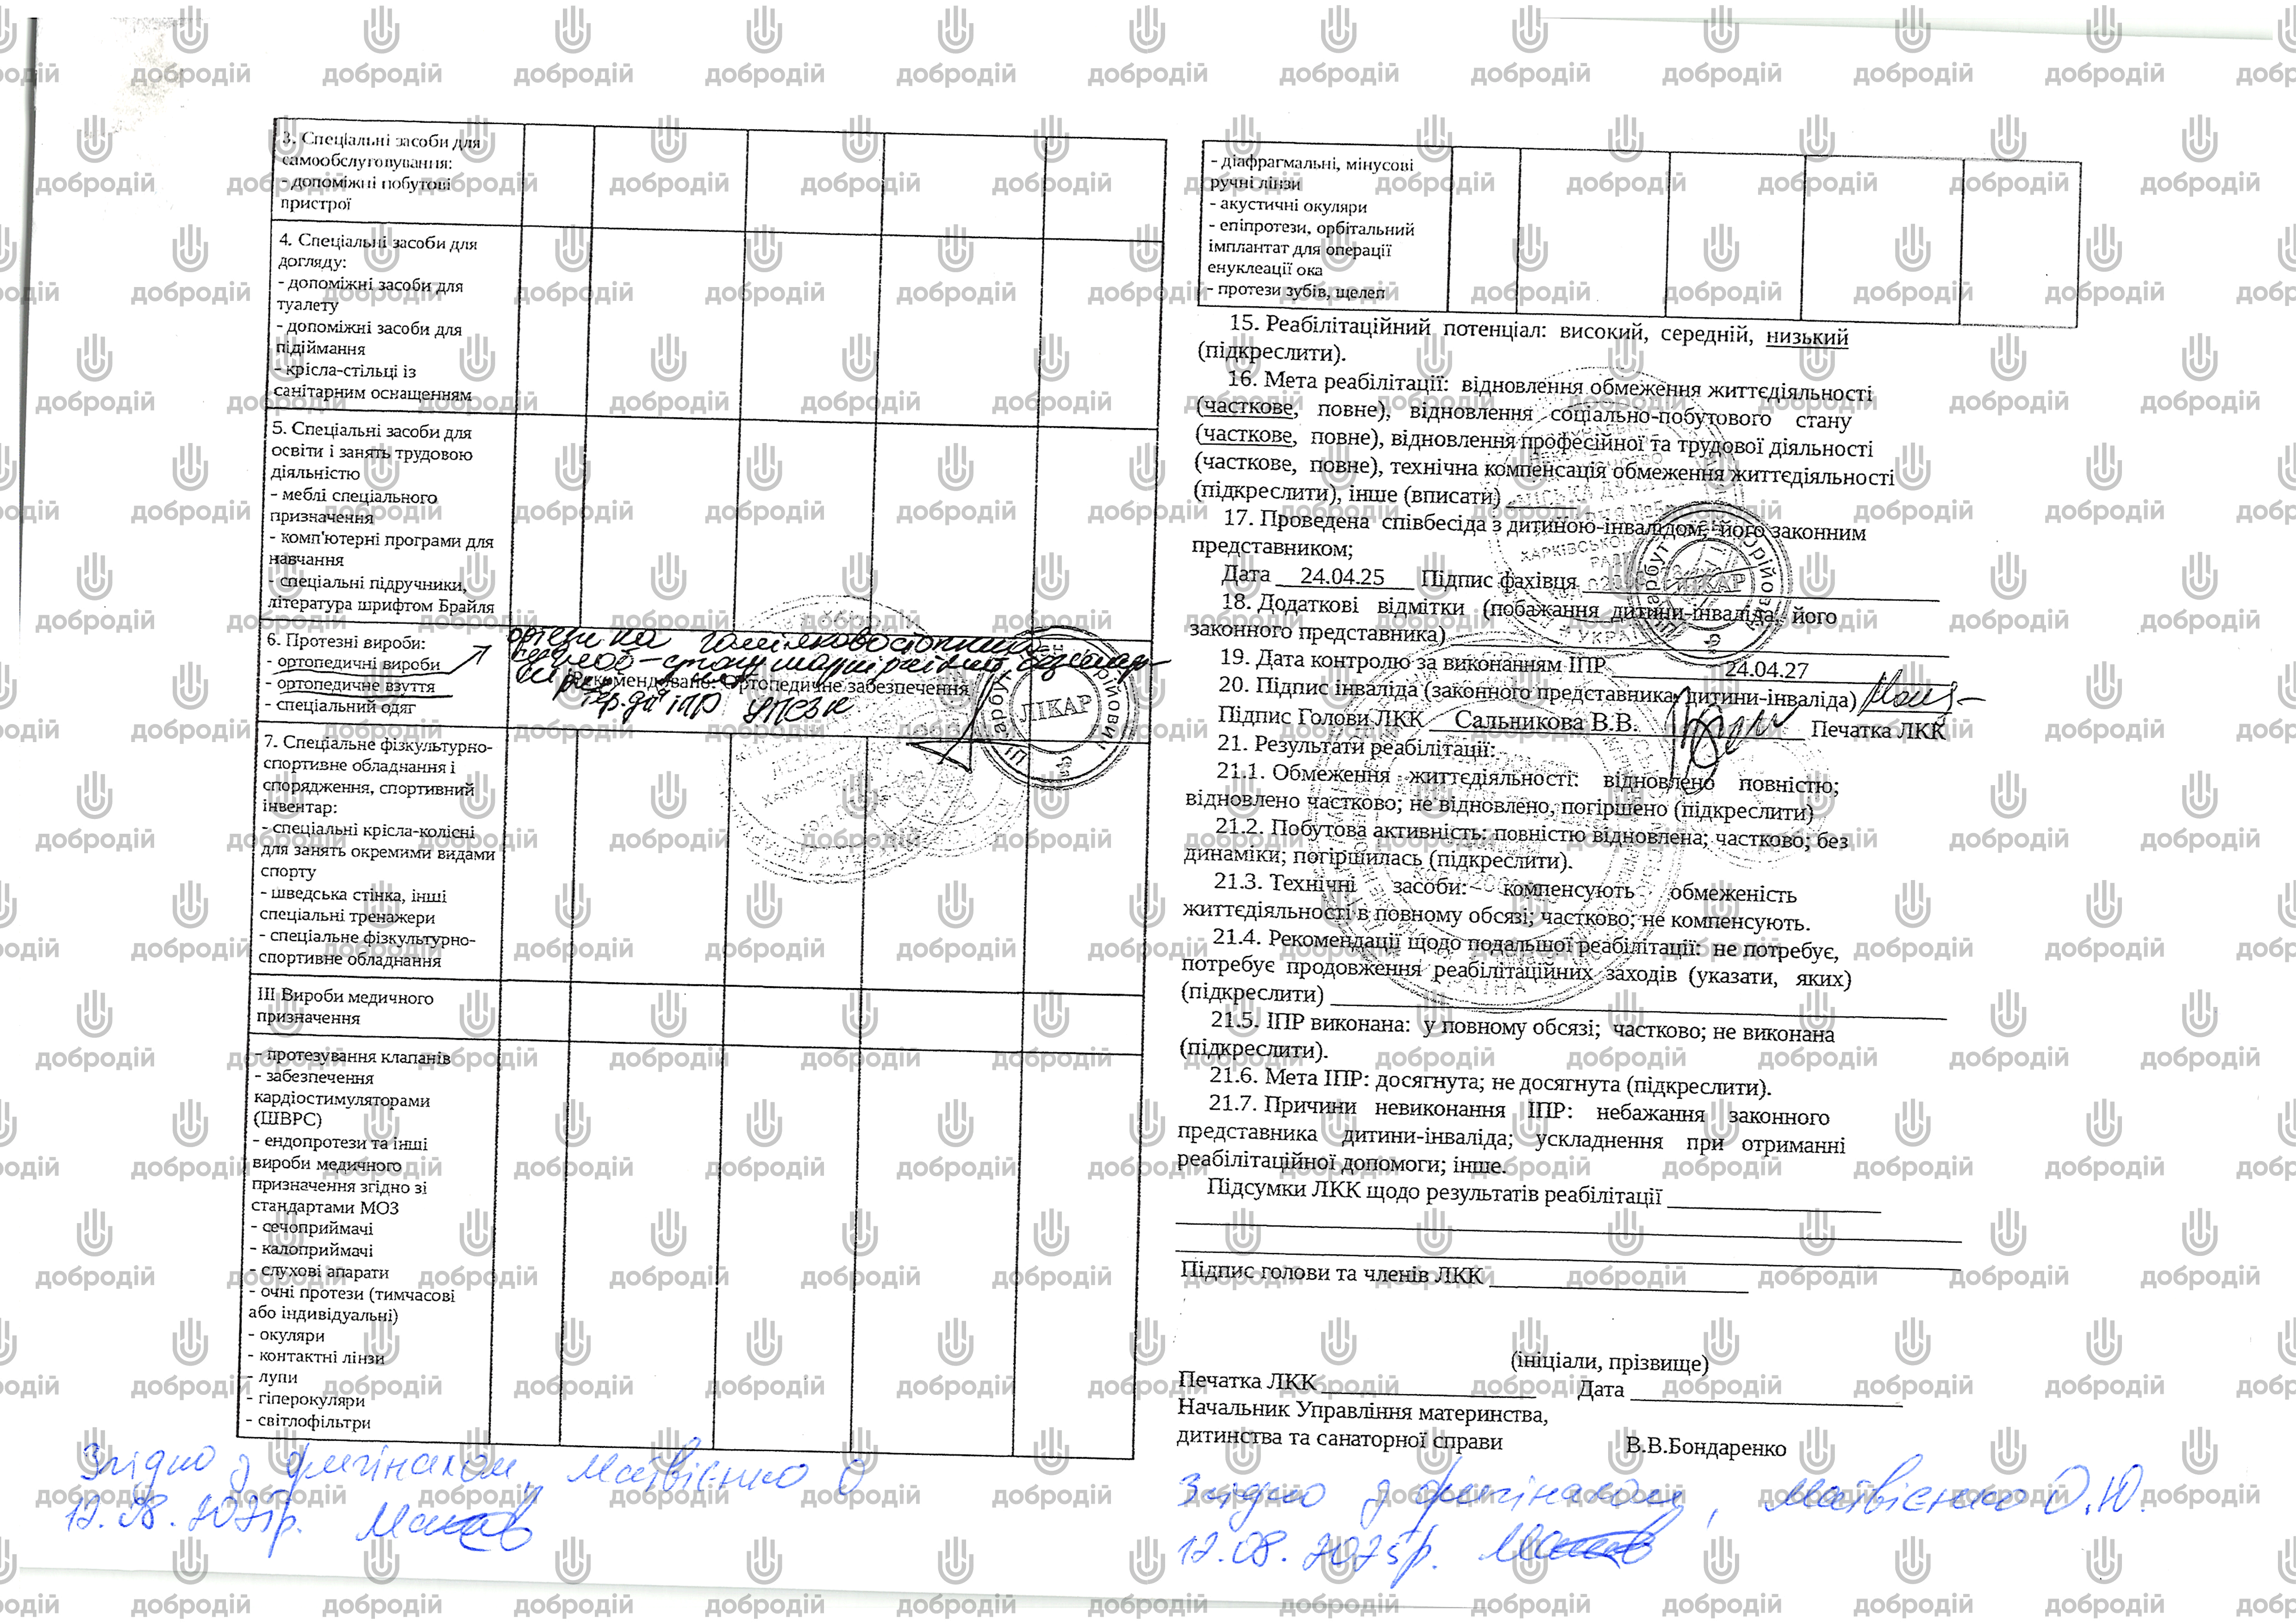 3. Спеціальні засоби для
самообслуговування:
- допоміжні побутові
пристрої
4. Спеціальні засоби для
догляду:
- допоміжні засоби для
туалету
- допоміжні засоби для
підіймання
- крісла-стільці із
санітарним оснащенням
5. Спеціальні засоби для
освіти і занять трудовою
діяльністю
- меблі спеціального
призначення
- комп'ютерні програми для
навчання
- спеціальні підручники,
література шрифтом Брайля
6. Протезні вироби:
- ортопедичні вироби
- ортопедичне взуття
- спеціальний одяг
ортези на гомілковостопний
Рекомендовано: Ортопедичне забезпечення
ЛІКАР
7. Спеціальне фізкультурно-
спортивне обладнання і
спорядження, спортивний
інвентар:
- спеціальні крісла-колісні
для занять окремими видами
спорту
- шведська стінка, інші
спеціальні тренажери
- спеціальне фізкультурно-
спортивне обладнання
III Вироби медичного
призначення
- протезування клапанів
- забезпечення
кардіостимуляторами
(ШВРС)
- ендопротези та інші
вироби медичного
призначення згідно зі
стандартами МОЗ
- сечоприймачі
- калоприймачі
- слухові апарати
- очні протези (тимчасові
або індивідуальні)
- окуляри
- контактні лінзи
- лупи
- гіперокуляри
- світлофільтри
Згідно з оригіналом, Матвієнко О
12.08.2025р.
- діафрагмальні, мінусові
ручні лінзи
- акустичні окуляри
- епіпротези, орбітальний
імплантат для операції
енуклеації ока
- протези зубів, щелеп
15. Реабілітаційний потенціал: високий, середній, низький
(підкреслити).
16. Мета реабілітації: відновлення обмеження життєдіяльності
(часткове, повне), відновлення соціально-побутового стану
(часткове, повне), відновлення професійної та трудової діяльності
(часткове, повне), технічна компенсація обмеження життєдіяльності
(підкреслити), інше (вписати)
17. Проведена співбесіда з дитиною-інвалідом, його законним
представником;
Дата 24.04.25 Підпис фахівця
ЛІКАР
18. Додаткові відмітки (побажання дитини-інваліда, його
законного представника)
19. Дата контролю за виконанням ІПР 24.04.27
20. Підпис інваліда (законного представника дитини-інваліда)
Підпис Голови ЛКК Сальникова В.В. Печатка ЛКК
21. Результати реабілітації:
21.1. Обмеження життєдіяльності: відновлено повністю;
відновлено частково; не відновлено, погіршено (підкреслити)
21.2. Побутова активність: повністю відновлена; частково; без
динаміки; погіршилась (підкреслити).
21.3. Технічні засоби: компенсують обмеженість
життєдіяльності в повному обсязі; частково; не компенсують.
21.4. Рекомендації щодо подальшої реабілітації: не потребує,
потребує продовження реабілітаційних заходів (указати, яких)
(підкреслити)
21.5. ІПР виконана: у повному обсязі; частково; не виконана
(підкреслити).
21.6. Мета ІПР: досягнута; не досягнута (підкреслити).
21.7. Причини невиконання ІПР: небажання законного
представника дитини-інваліда; ускладнення при отриманні
реабілітаційної допомоги; інше.
Підсумки ЛКК щодо результатів реабілітації
Підпис голови та членів ЛКК
(ініціали, прізвище)
Печатка ЛКК Дата
Начальник Управління материнства,
дитинства та санаторної справи В.В.Бондаренко
Згідно з оригіналом, Матвієнко О.Ю.
12.08.2025р.
добродій